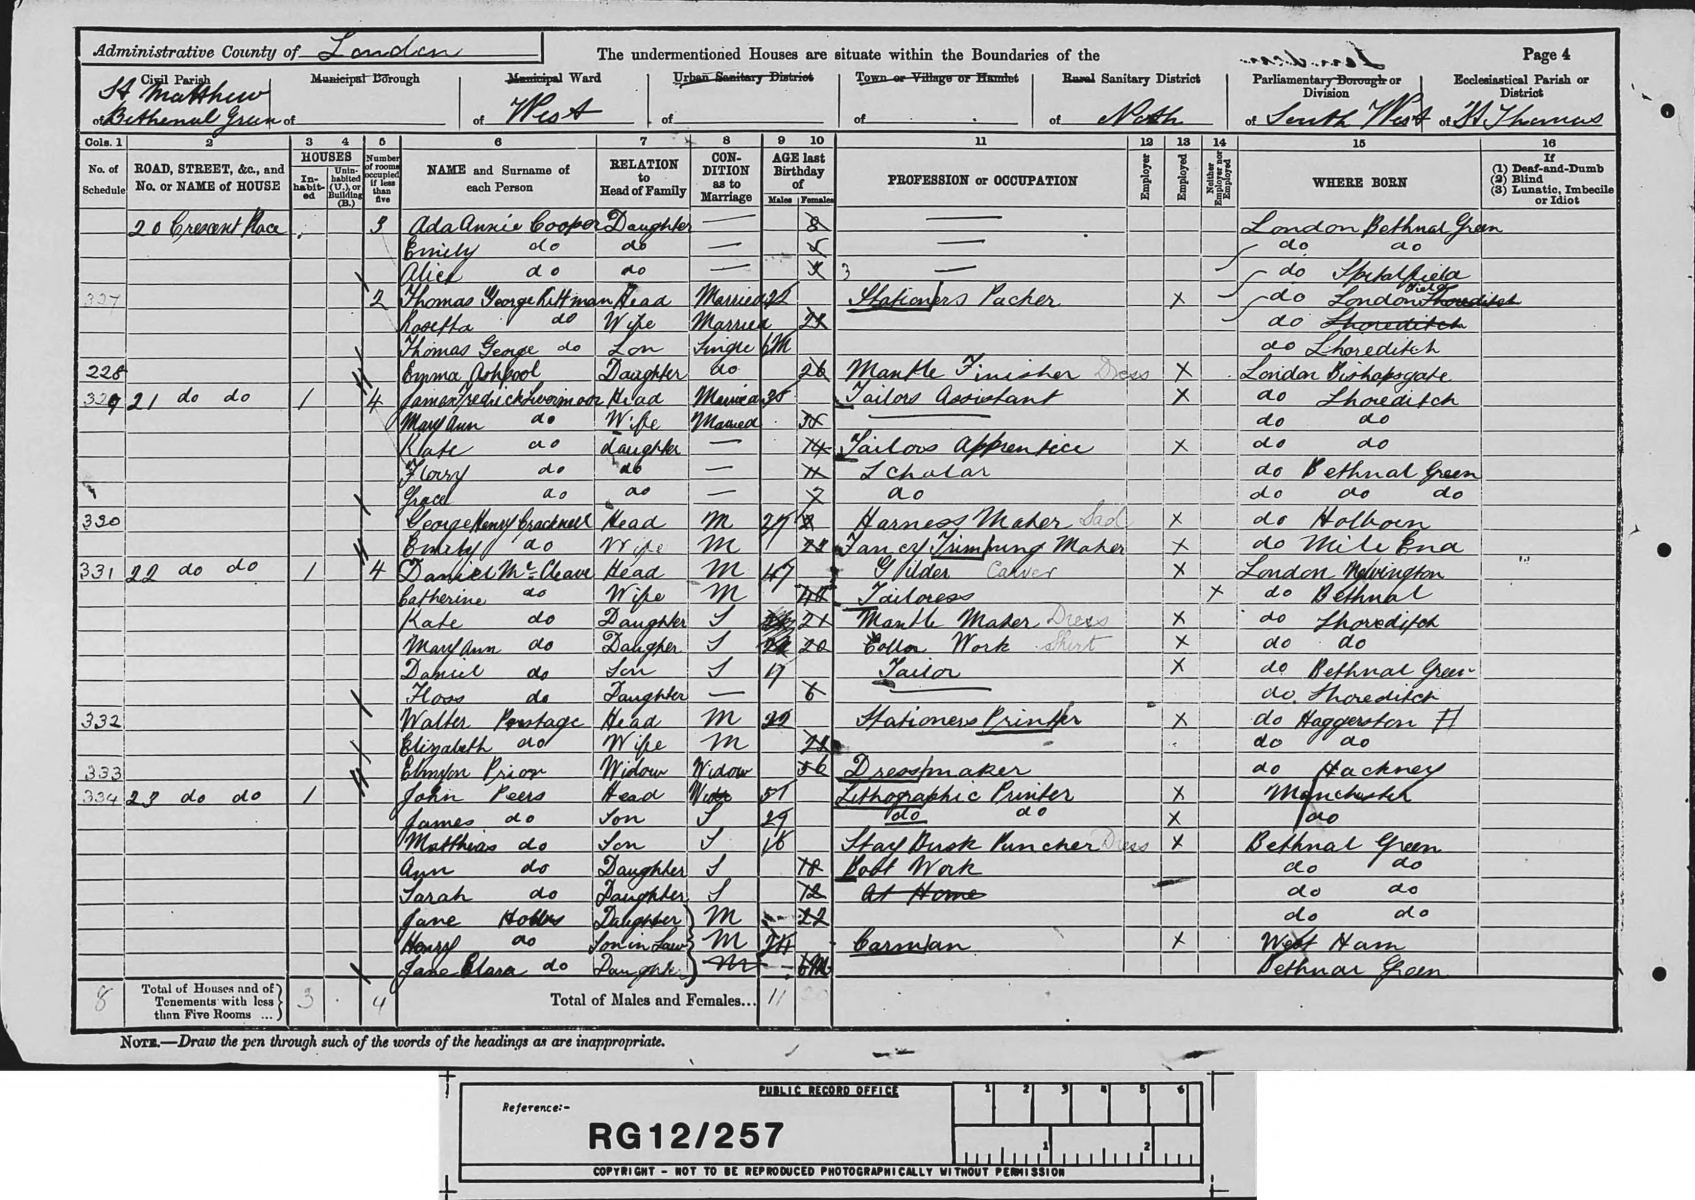 Administrative County of London
The undermentioned Houses are situate within the Boundaries of the
London
Page 4
Civil Parish of St Matthew Bethnal Green
Municipal Borough of
Municipal Ward of West
Urban Sanitary District of
Town or Village or Hamlet of
Rural Sanitary District of North
Parliamentary Borough or Division of South West
Ecclesiastical Parish or District of St Thomas
Cols. 1 2 3 4 5 6 7 8 9 10 11 12 13 14 15 16
No. of Schedule
ROAD, STREET, &c., and No. or NAME of HOUSE
HOUSES
In-habit-ed
Unin-habited (U.), or Building (B.)
Number of rooms occupied if less than five
NAME and Surname of each Person
RELATION to Head of Family
CON-DITION as to Marriage
AGE last Birthday of
Males Females
PROFESSION or OCCUPATION
Employer
Employed
Neither Employer nor Employed
WHERE BORN
If (1) Deaf-and-Dumb (2) Blind (3) Lunatic, Imbecile or Idiot
20 Crescent Place 3 Ada Annie Cooper Daughter — 8 — London Bethnal Green
Emily do do — 5 — do do
Alice do do — 3 3 — do Spitalfield
327 2 Thomas George Pittman Head Married 22 Stationers Packer X do London Field Shoreditch
Rosetta do Wife Married 21 do Shoreditch
Thomas George do Son Single 6M do Shoreditch
228 Emma Ashpool Daughter do 26 Mantle Finisher Dress X London Bishopsgate
329 21 do do 1 4 James Fredrick Livermoor Head Married 38 Tailors Assistant X do Shoreditch
Mary Ann do Wife Married 38 do do
Kate do daughter — 14 Tailors Apprentice X do do
Florry do do — 11 Scholar do Bethnal Green
Grace do do — 7 do do do do
330 George Henry Cracknell Head M 27 Harness Maker Sad X do Holborn
Emily do Wife M 28 Fancy Trimming Maker X do Mile End
331 22 do do 1 4 Daniel McCleave Head M 47 Gilder Carver X London Newington
Catherine do Wife M 48 Tailoress X do Bethnal
Kate do Daughter S 21 Mantle Maker Dress X do Shoreditch
Mary Ann do Daugher S 20 Collar Work Shirt X do do
Daniel do Son S 17 Tailor X do Bethnal Green
Floss do Daughter — 6 do Shoreditch
332 Walter Postage Head M 22 Stationers Printer X do Haggerston
Elizabeth do Wife M 21 do do
333 Prior Widow Widow 56 Dressmaker do Hackney
334 23 do do 1 John Peers Head Widr 51 Lithographic Printer X Manchester
James do Son S 29 do do X do
Matthias do Son S 16 Stay Busk Puncher Dress X Bethnal Green
Ann do Daughter S 18 Boot Work do do
Sarah do Daughter S 12 At Home do do
Jane Hobbs Daughter M 22 do do
Henry do Son in Law M 24 Carman X West Ham
Jane Clara do Daughter M 6M Bethnal Green
8 Total of Houses and of Tenements with less than Five Rooms ... 3 4 Total of Males and Females... 11
NOTE.—Draw the pen through such of the words of the headings as are inappropriate.
PUBLIC RECORD OFFICE
1 2 3 4 5 6
Reference:-
RG12/257
1 2
COPYRIGHT - NOT TO BE REPRODUCED PHOTOGRAPHICALLY WITHOUT PERMISSION